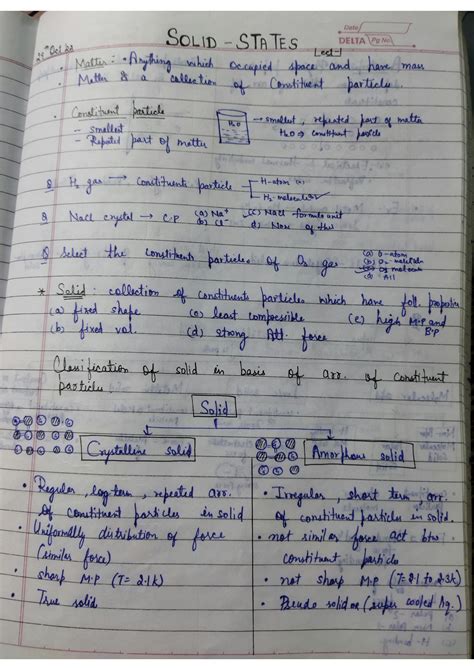 Date
DELTA Pg No.
SOLID - STATES
Lect-1
Matter : • Anything which occupied space and have mass
• Matter is a collection of Constituent particles
• Constituent particle
- smallest
- Repeated part of matter
H₂O
→ smallest, repeated part of matter
H₂O → constituent particle
Q H₂ gas → Constituents particle
H-atom (x)
H₂-molecule ✓
Q Nacl crystal → C.P (a) Na⁺ (c) Nacl formula unit
(b) Cl⁻ d) None of this
Q Select the constituents particles of O₃ gas
(a) O-atom
(b) O₂-molecule
(c) O₃ molecule
(d) All
* Solid : collection of constituents particles which have foll. properties
(a) fixed shape (c) least compessible (e) high M.P and B.P
(b) fixed vol. (d) strong Att. force
Classification of solid in basis of arr. of constituent
particles
Solid
Crystalline solid
Amorphous solid
• Regular, long term, repeated arr.
of constituent particles in solid
• Uniformally distribution of force
(similar force)
• sharp M.P (T= 2.1k)
• True solid
• Irregular, short term arr.
of constituent particles in solid.
• not similar force act btw
constituent particle
• not sharp M.P (T=2.1 to 2.3k)
• Pseudo solid or (super cooled liq.)